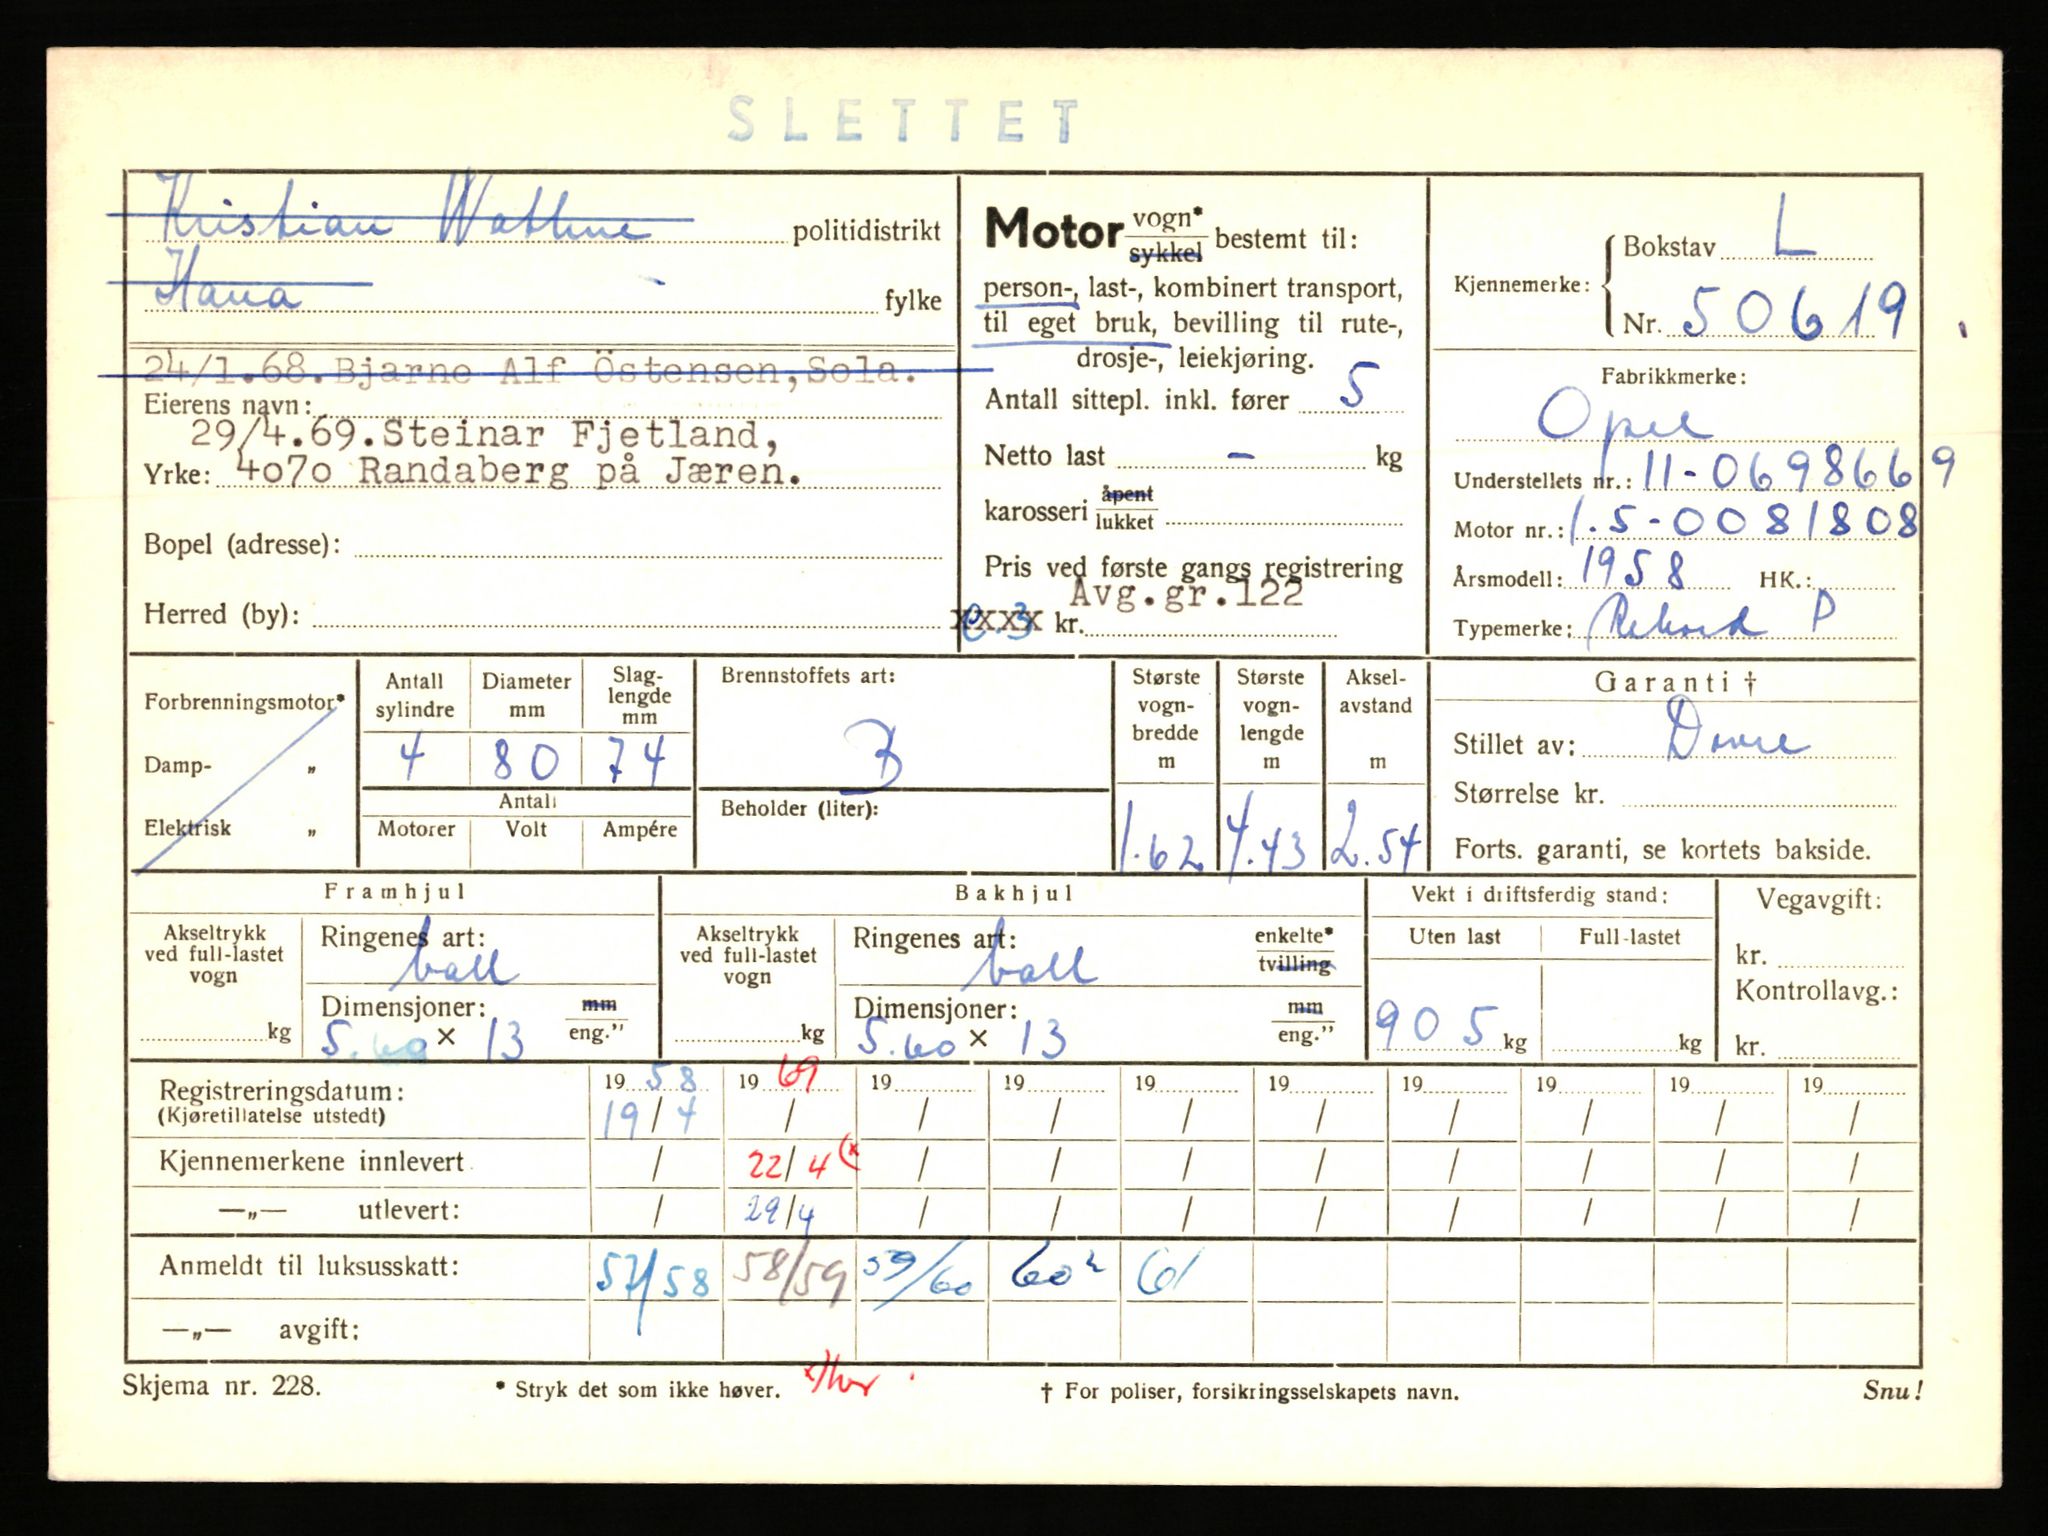 SLETTET
Kristian Wathne politidistrikt
Hana fylke
24/1.68. Bjarne Alf Östensen, Sola.
Eierens navn:
29/4.69. Steinar Fjetland,
Yrke: 4070 Randaberg på Jæren.
Bopel (adresse):
Herred (by):
Motor vogn* sykkel bestemt til:
person-, last-, kombinert transport,
til eget bruk, bevilling til rute-,
drosje-, leiekjøring.
Antall sittepl. inkl. fører 5
Netto last - kg
karosseri åpent lukket
Pris ved første gangs registrering
Avg.gr.122
xxxx kr.
Kjennemerke: Bokstav L
Nr. 50619
Fabrikkmerke:
Opel
Understellets nr.: 11-0698669
Motor nr.: 1.5-0081808
Årsmodell: 1958 HK.:
Typemerke: Rekord P
Forbrenningsmotor*
Damp- „
Elektrisk „
Antall sylindre Diameter mm Slag-lengde mm
4 80 74
Antall
Motorer Volt Ampére
Brennstoffets art:
B
Beholder (liter):
Største vogn-bredde m Største vogn-lengde m Aksel-avstand m
1.62 4.43 2.54
Garanti †
Stillet av: Dovre
Størrelse kr.
Forts. garanti, se kortets bakside.
Framhjul
Akseltrykk ved full-lastet vogn
kg
Ringenes art:
ball
Dimensjoner: mm eng."
5.60 x 13
Bakhjul
Akseltrykk ved full-lastet vogn
kg
Ringenes art: enkelte* tvilling
ball
Dimensjoner: mm eng."
5.60 x 13
Vekt i driftsferdig stand:
Uten last Full-lastet
905 kg kg
Vegavgift:
kr.
Kontrollavg.:
kr.
Registreringsdatum: 19 58 19 69 19 19 19 19 19 19 19 19
(Kjøretillatelse utstedt) 19/4 / / / / / / / / /
Kjennemerkene innlevert / 22/4 (x / / / / / / / /
—„— utlevert: / 29/4 / / / / / / / /
Anmeldt til luksusskatt: 57/58 58/59 59/60 60² 61
—„— avgift:
Skjema nr. 228. * Stryk det som ikke høver. † For poliser, forsikringsselskapets navn. Snu!